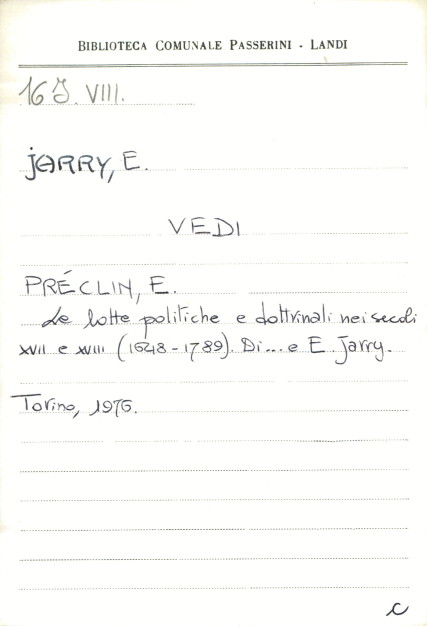 BIBLIOTECA COMUNALE PASSERINI - LANDI
16 J. VIII.
JARRY, E.
VEDI
PRÉCLIN, E.
Le lotte politiche e dottrinali nei secoli
XVII e XVIII (1648-1789). Di... e E. Jarry.
Torino, 1976.
C